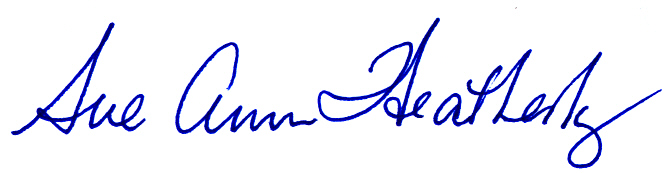 Sue Ann Heatherly